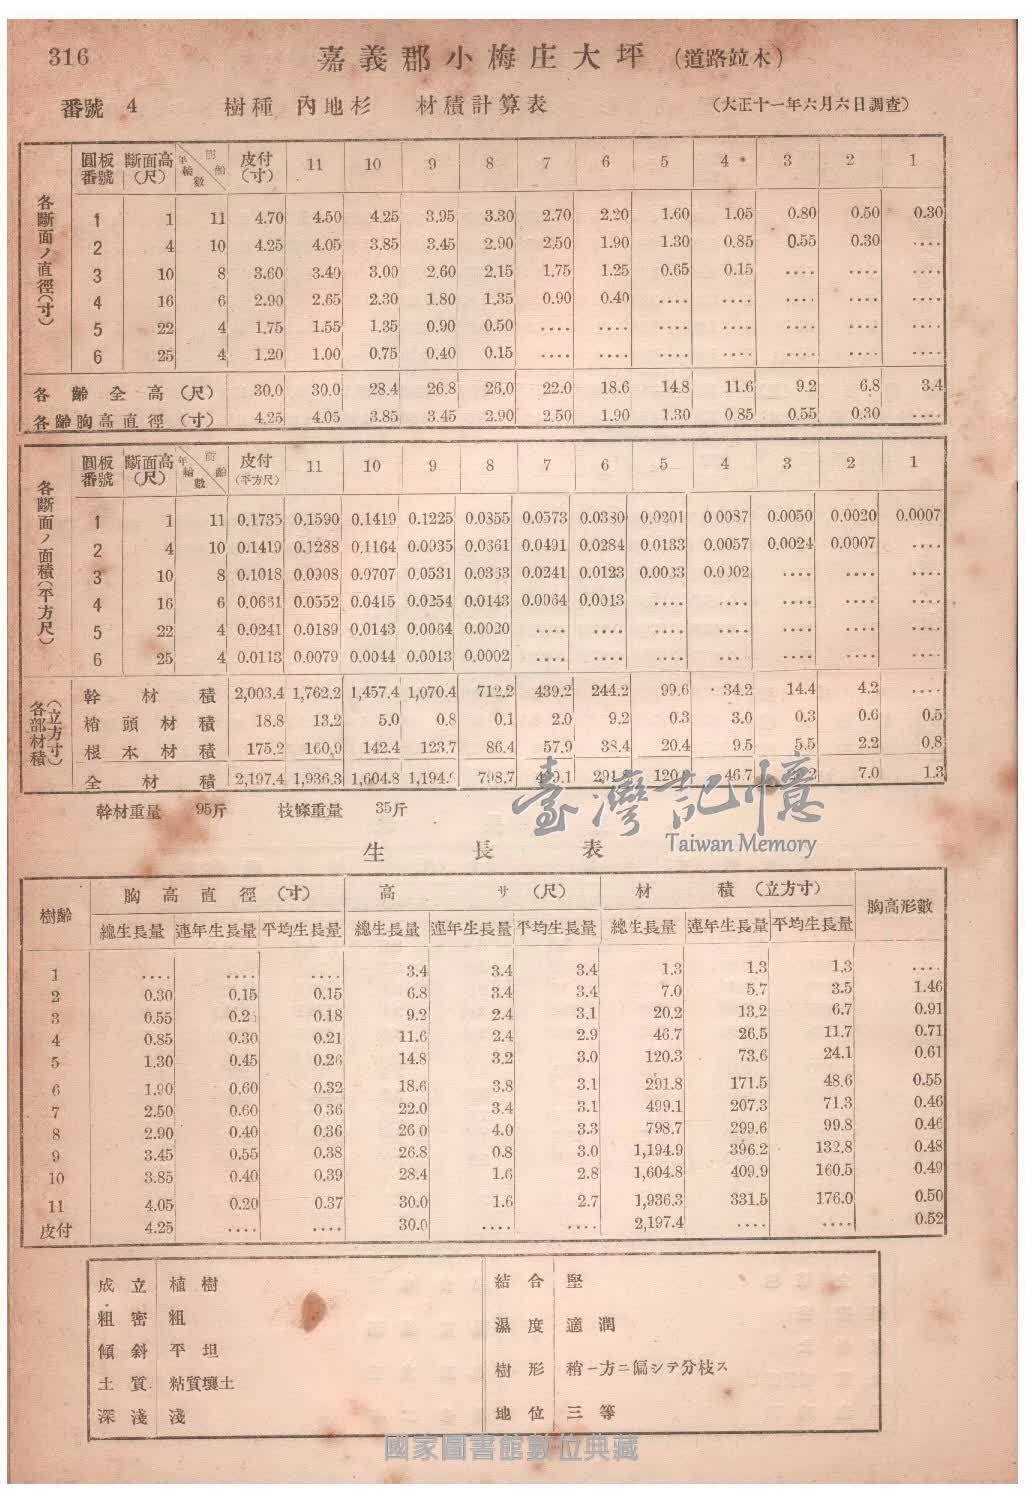 316 嘉義郡小梅庄大坪 (道路竝木)
番號 4 樹種 內地杉 材積計算表 (大正十一年六月六日調查)
各斷面ノ直徑(寸)
圓板番號 斷面高(尺) 年輪數 樹齡 皮付(寸) 11 10 9 8 7 6 5 4 3 2 1
1 1 11 4.70 4.50 4.25 3.95 3.30 2.70 2.20 1.60 1.05 0.80 0.50 0.30
2 4 10 4.25 4.05 3.85 3.45 2.90 2.50 1.90 1.30 0.85 0.55 0.30 ....
3 10 8 3.60 3.40 3.00 2.60 2.15 1.75 1.25 0.65 0.15 .... .... ....
4 16 6 2.90 2.65 2.30 1.80 1.35 0.90 0.40 .... .... .... .... ....
5 22 4 1.75 1.55 1.35 0.90 0.50 .... .... .... .... .... .... ....
6 25 4 1.20 1.00 0.75 0.40 0.15 .... .... .... .... .... .... ....
各齡全高(尺) 30.0 30.0 28.4 26.8 26.0 22.0 18.6 14.8 11.6 9.2 6.8 3.4
各齡胸高直徑(寸) 4.25 4.05 3.85 3.45 2.90 2.50 1.90 1.30 0.85 0.55 0.30 ....
各斷面ノ面積(平方尺)
圓板番號 斷面高(尺) 年輪數 樹齡 皮付(平方尺) 11 10 9 8 7 6 5 4 3 2 1
1 1 11 0.1735 0.1590 0.1419 0.1225 0.0855 0.0573 0.0380 0.0201 0.0087 0.0050 0.0020 0.0007
2 4 10 0.1419 0.1288 0.1164 0.0935 0.0661 0.0491 0.0284 0.0133 0.0057 0.0024 0.0007 ....
3 10 8 0.1018 0.0908 0.0707 0.0531 0.0363 0.0241 0.0123 0.0033 0.0002 .... .... ....
4 16 6 0.0661 0.0552 0.0415 0.0254 0.0143 0.0064 0.0013 .... .... .... .... ....
5 22 4 0.0241 0.0189 0.0143 0.0064 0.0020 .... .... .... .... .... .... ....
6 25 4 0.0113 0.0079 0.0044 0.0013 0.0002 .... .... .... .... .... .... ....
各部材積(立方寸)
幹材積 2,003.4 1,762.2 1,457.4 1,070.4 712.2 439.2 244.2 99.6 34.2 14.4 4.2 ....
梢頭材積 18.8 13.2 5.0 0.8 0.1 2.0 9.2 0.3 3.0 0.3 0.6 0.5
根本材積 175.2 160.9 142.4 123.7 86.4 57.9 38.4 20.4 9.5 5.5 2.2 0.8
全材積 2,197.4 1,936.3 1,604.8 798.7 46.7 7.0 1.3
幹材重量 95斤 枝條重量 35斤
臺灣記憶
Taiwan Memory
生長表
樹齡 胸高直徑(寸) 高サ(尺) 材積(立方寸) 胸高形數
總生長量 連年生長量 平均生長量 總生長量 連年生長量 平均生長量 總生長量 連年生長量 平均生長量
1 .... .... .... 3.4 3.4 3.4 1.3 1.3 1.3 ....
2 0.30 0.15 0.15 6.8 3.4 3.4 7.0 5.7 3.5 1.46
3 0.55 0.25 0.18 9.2 2.4 3.1 20.2 13.2 6.7 0.91
4 0.85 0.30 0.21 11.6 2.4 2.9 46.7 26.5 11.7 0.71
5 1.30 0.45 0.26 14.8 3.2 3.0 120.3 73.6 24.1 0.61
6 1.90 0.60 0.32 18.6 3.8 3.1 291.8 171.5 48.6 0.55
7 2.50 0.60 0.36 22.0 3.4 3.1 499.1 207.3 71.3 0.46
8 2.90 0.40 0.36 26.0 4.0 3.3 798.7 299.6 99.8 0.46
9 3.45 0.55 0.38 26.8 0.8 3.0 1,194.9 396.2 132.8 0.48
10 3.85 0.40 0.39 28.4 1.6 2.8 1,604.8 409.9 160.5 0.49
11 4.05 0.20 0.37 30.0 1.6 2.7 1,936.3 331.5 176.0 0.50
皮付 4.25 .... .... 30.0 .... .... 2,197.4 .... .... 0.52
成立 植樹
粗密 粗
傾斜 平坦
土質 粘質壤土
深淺 淺
結合 堅
濕度 適潤
樹形 稍一方ニ偏シテ分枝ス
地位 三等
國家圖書館數位典藏